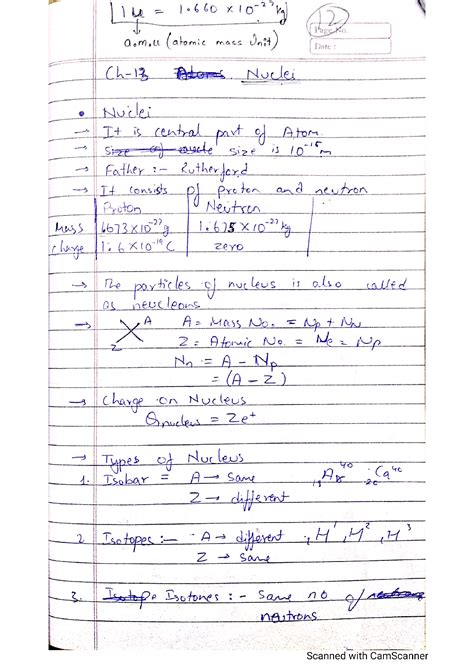 1 u = 1.660 × 10⁻²⁷ kg
a.m.u (atomic mass Unit)
12
Page No.
Date :
Ch-13 Atoms Nuclei
• Nuclei
→ It is central part of Atom
→ Size of nucle size is 10⁻¹⁵ m
→ Father :- Rutherford
→ It consists of proton and neutron
Proton Neutron
Mass 1.675 × 10⁻²⁷ kg
charge 1.6 × 10⁻¹⁹ C zero
→ The particles of nucleus is also called
as neucleons
→ X A Z A = Mass No. = Np + Nn
Z = Atomic No. = Ne = Np
Nn = A - Np
= (A - Z)
→ Charge on Nucleus
Qnucleus = Ze⁺
→ Types of Nucleus
1. Isobar = A → same ₁₈Ar⁴⁰ ₂₀Ca⁴⁰
Z → different
2 Isotopes :- A → different ₁H¹, H², H³
Z → same
3. Isotope Isotones :- Same no of neutrons
neutrons
Scanned with CamScanner